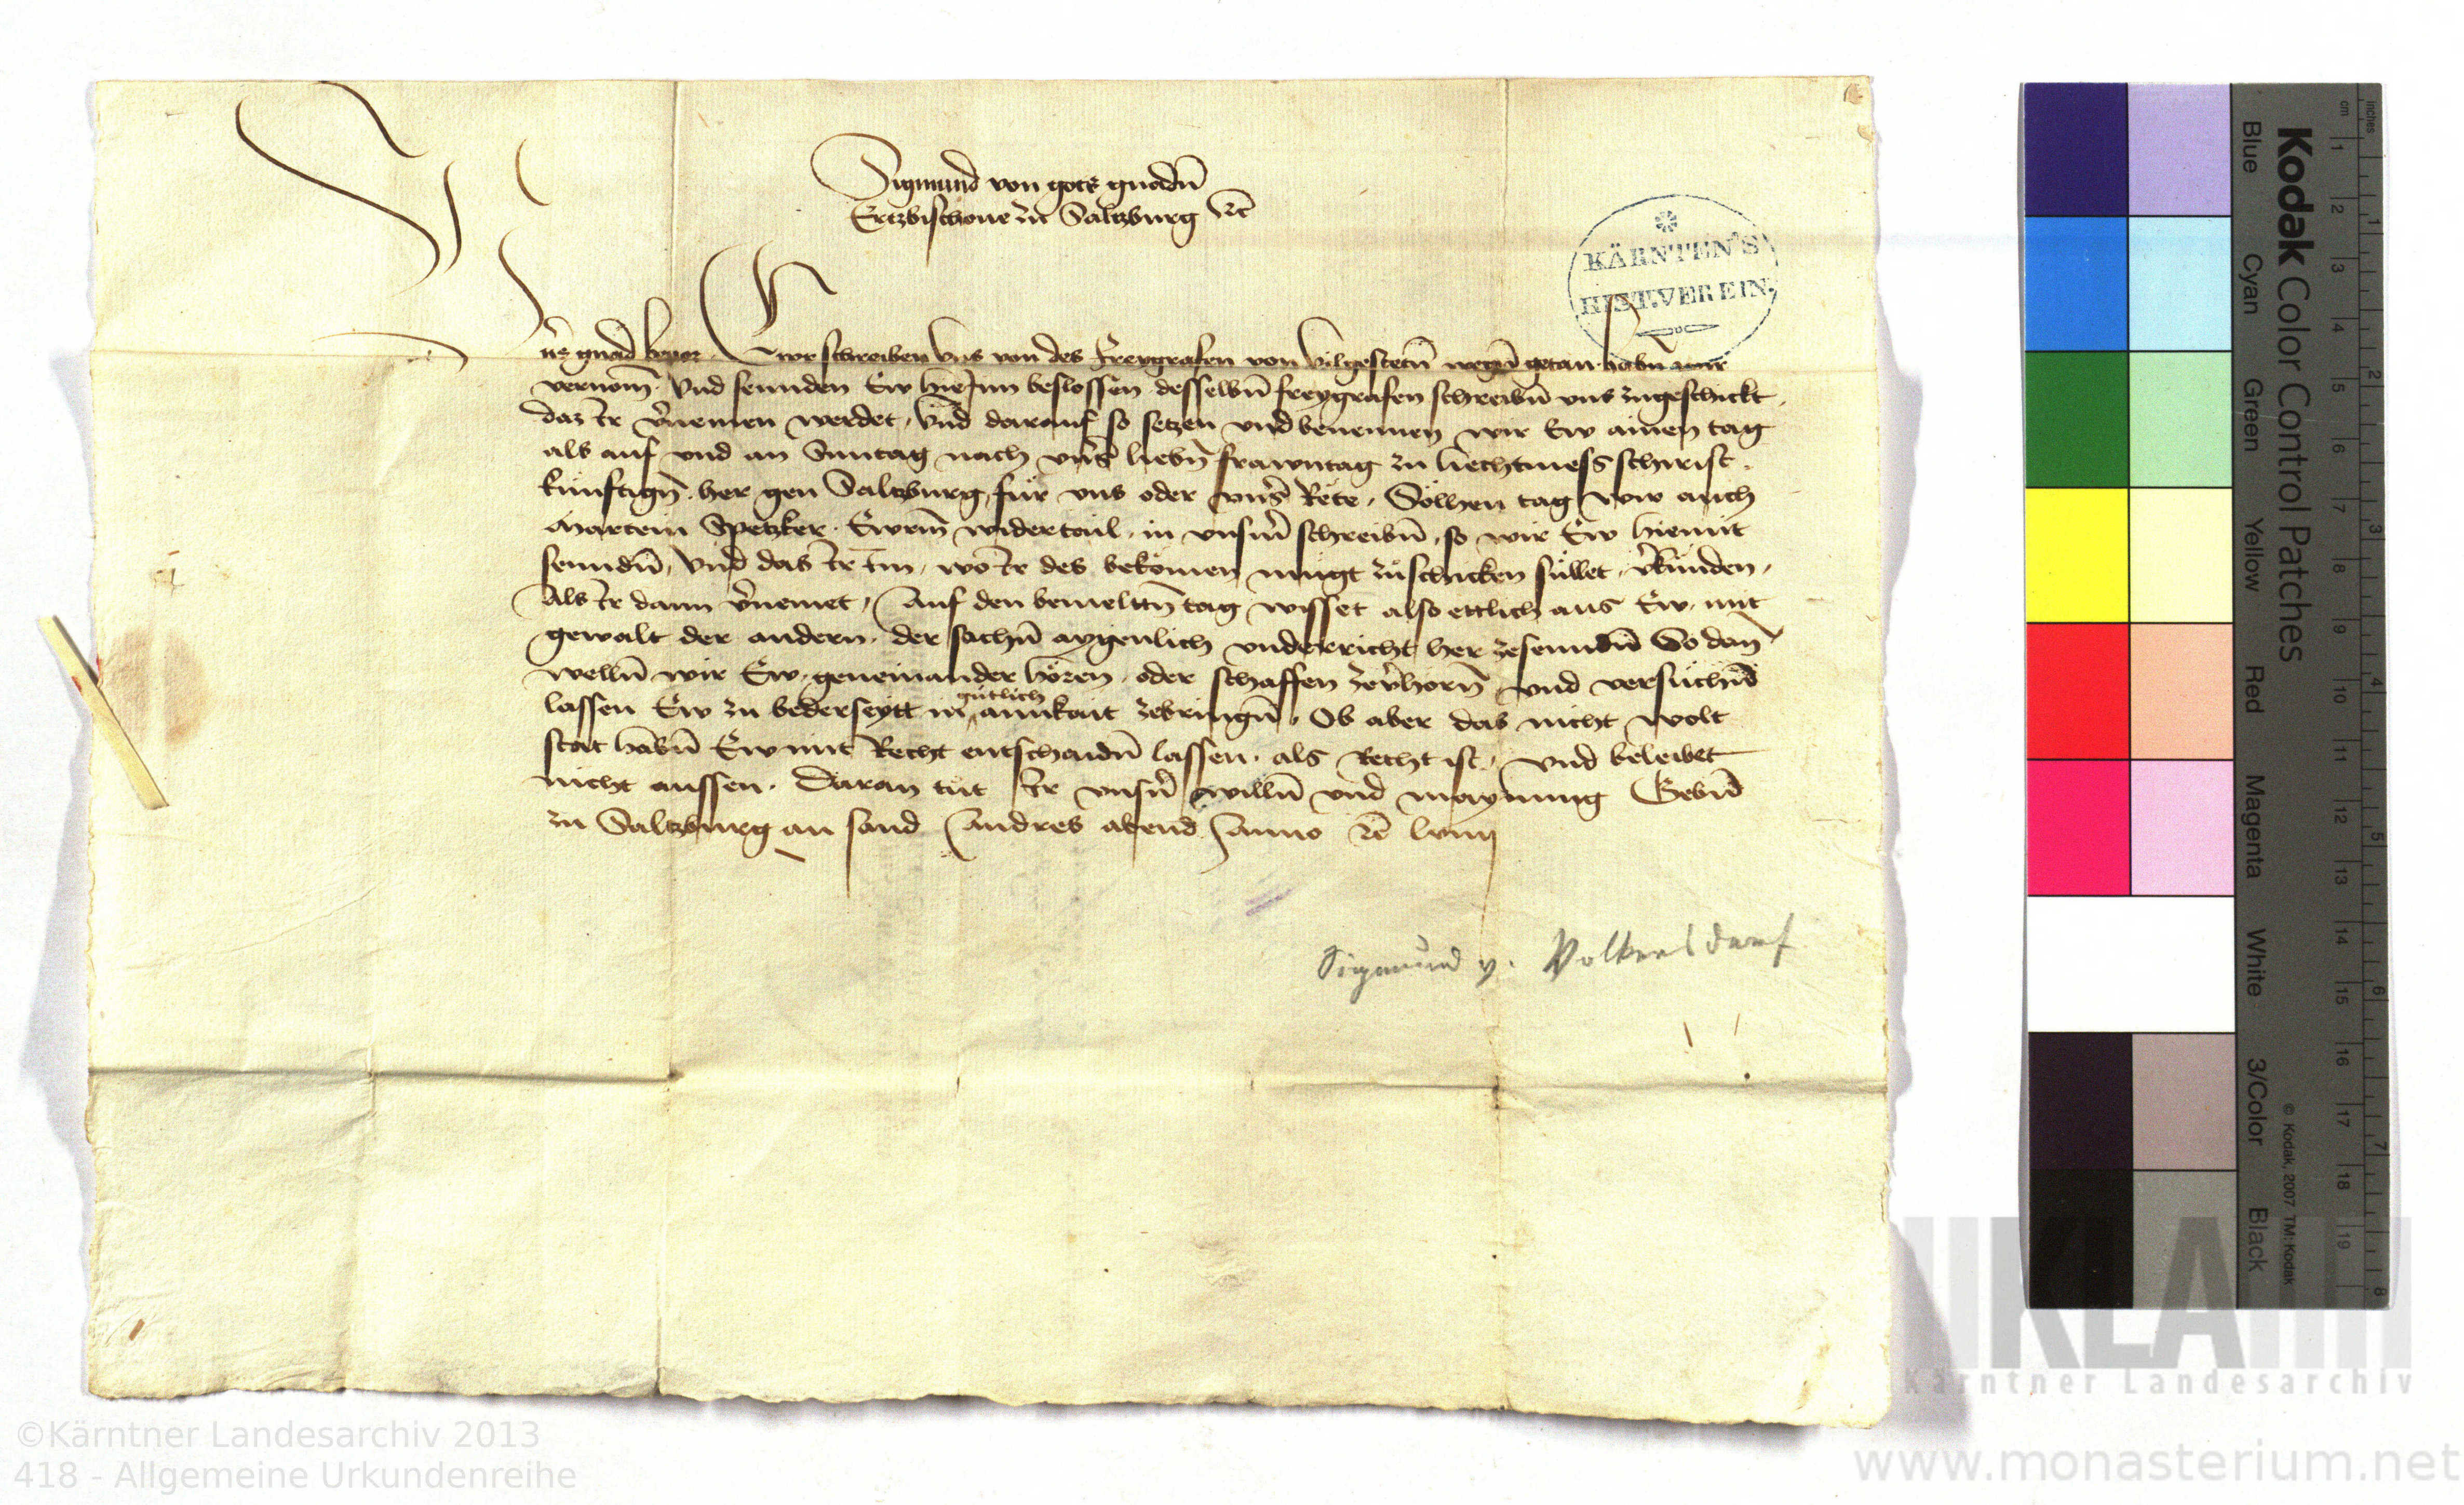 Sigmund von gots gnadn̄
Ertzbischoue zu Saltzburg ꝛc̄
KÄRNTEN'S
HIST. VEREIN.
vn̄s gnad beuor. Ewr schreiben vns von des freygrafen von Vilgestetn̄ wegn̄ getan habn̄ wir
vernom̄. Vnd sennden Ew hieJnn beslossen desselbn̄ freygrafen schreibn̄ vns zugeschickt.
daz Ir v̄nemen werdet. Vnd darauf so setzen vnd benennen wir Ew ainen tag
als auf vnd an Sunntag nach vn̄s liebn̄ frawntag zu liechtmess schirist.
kunftign̄. her gen Saltzburg, für vns oder vn̄s Rete. Sölhen tag wir auch
Martein Spetzker. Ewrm̄ widertail. in vnsm̄ schreibn̄, so wir Ew hiemit
senndn̄, Vnd das Ir Im, wo Ir des bekömen mugt zuschicken süllet, v̄künden.
Als Ir dann v̄nemet, Auf den bemeltn̄ tag wisset also ettlich aus Ew. mit
gewalt der andern. der sachn̄ aygenlich vnderricht her zesenndn̄ So dan̄
welln̄ wir Ew. geneinander hören. oder schaffen zev̄horn̄ vnd versuchn̄
lassen Ew zu bederseytt in gütlich ainikait zebringn̄. Ob aber das nicht wolt
stat habn̄ Ew mit Recht entschaidn̄ lassen. als Recht ist. vnd beleibet
nicht aussen. Daran tut Ir vnsn̄ willn̄ vnd maynung Gebn̄
zu Saltzburg an sand Andres abend Anno ꝛc̄ lviij
Sigmund v. Volkersdorf
Kodak Color Control Patches
Blue Cyan Green Yellow Red Magenta White 3/Color Black
© Kodak, 2007 TM: Kodak
inches 1 2 3 4 5 6 7 8
cm 1 2 3 4 5 6 7 8 9 10 11 12 13 14 15 16 17 18 19
KLA
Kärntner Landesarchiv
©Kärntner Landesarchiv 2013
418 - Allgemeine Urkundenreihe
www.monasterium.net